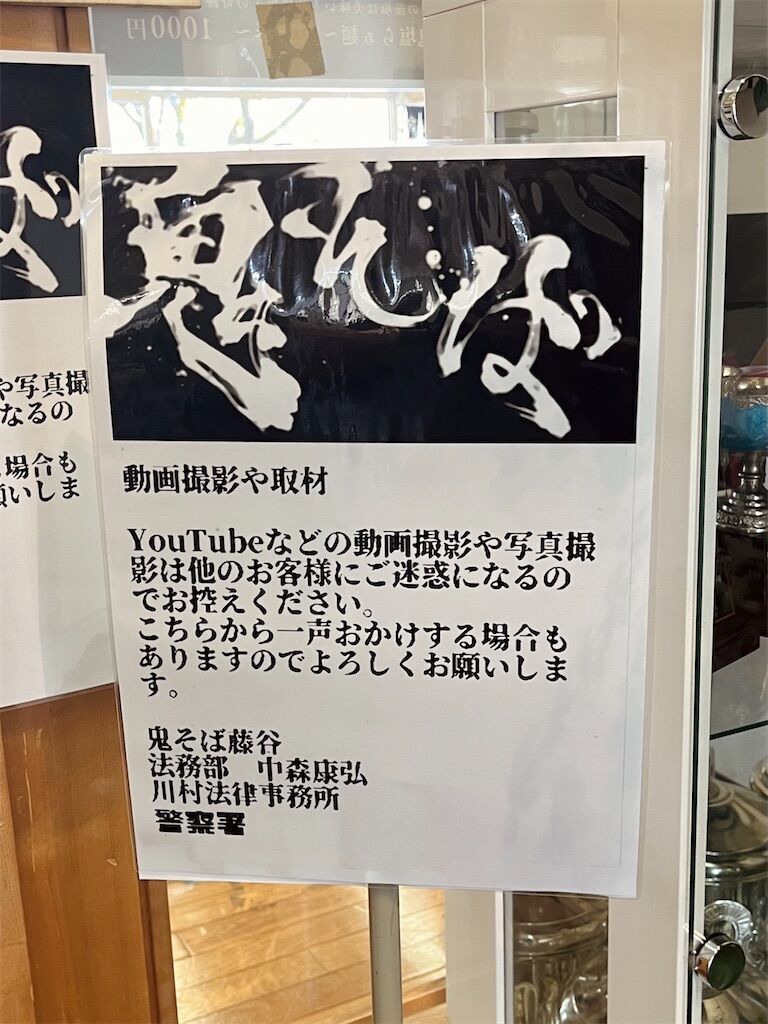 〜鬼塩らぁ麺〜 1000円
鬼そば
や写真撮
なるの
場合も
願いしま
動画撮影や取材
YouTubeなどの動画撮影や写真撮
影は他のお客様にご迷惑になるの
でお控えください。
こちらから一声おかけする場合も
ありますのでよろしくお願いしま
す。
鬼そば藤谷
法務部 中森康弘
川村法律事務所